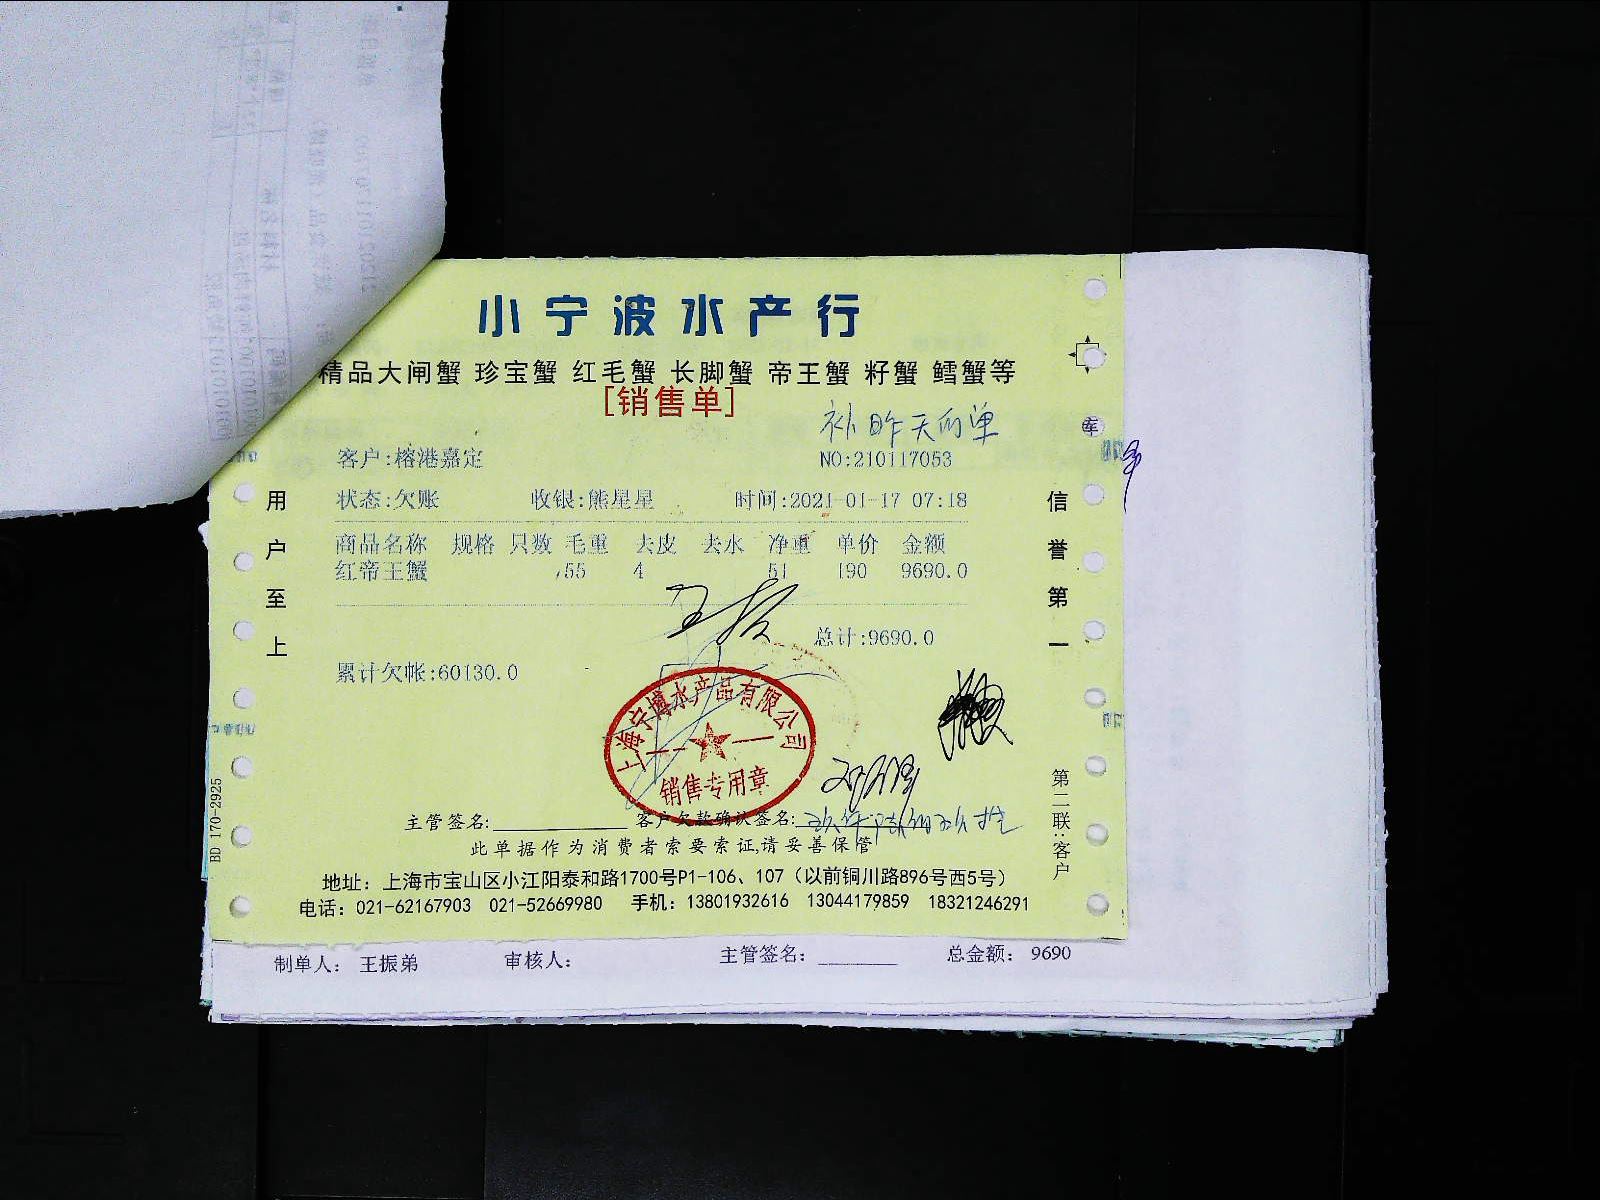 小宁波水产行
精品大闸蟹 珍宝蟹 红毛蟹 长脚蟹 帝王蟹 籽蟹 鳕蟹等
[销售单]
补昨天的单
客户:榕港嘉定 NO:210117053
状态:欠账 收银:熊星星 时间:2021-01-17 07:18
商品名称 规格 只数 毛重 去皮 去水 净重 单价 金额
红帝王蟹 55 4 51 190 9690.0
总计:9690.0
累计欠帐:60130.0
用户至上
信誉第一
上海宁博水产品有限公司
销售专用章
主管签名: 客户欠款确认签名:
此单据作为消费者索要索证,请妥善保管
地址：上海市宝山区小江阳泰和路1700号P1-106、107（以前铜川路896号西5号）
电话：021-62167903 021-52669980 手机：13801932616 13044179859 18321246291
第二联:客户
BD 170-2925
制单人： 王振弟 审核人： 主管签名： 总金额： 9690